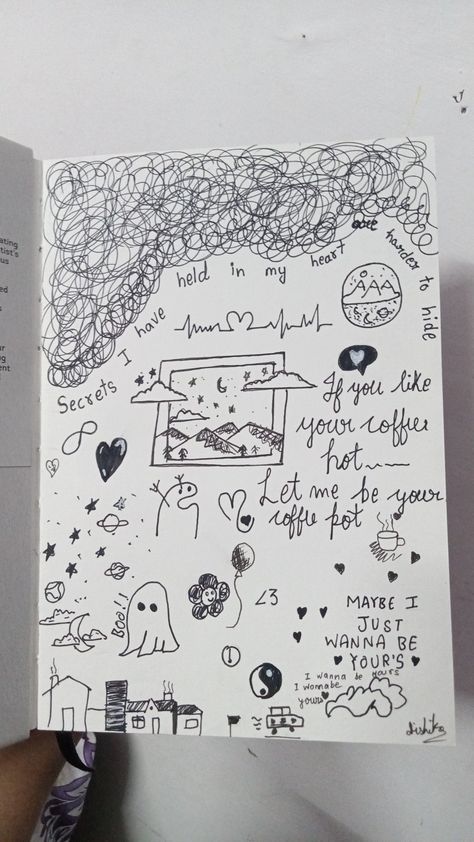 ating
tist's
us
ed
s
ur
ng
ent
Secrets I have held in my heart are harder to hide
If you like
your coffee
hot
Let me be your
coffe pot
BOO!!
<3
MAYBE I
JUST
WANNA BE
YOUR'S
I wanna be yours
I wannabe
yours
dishika